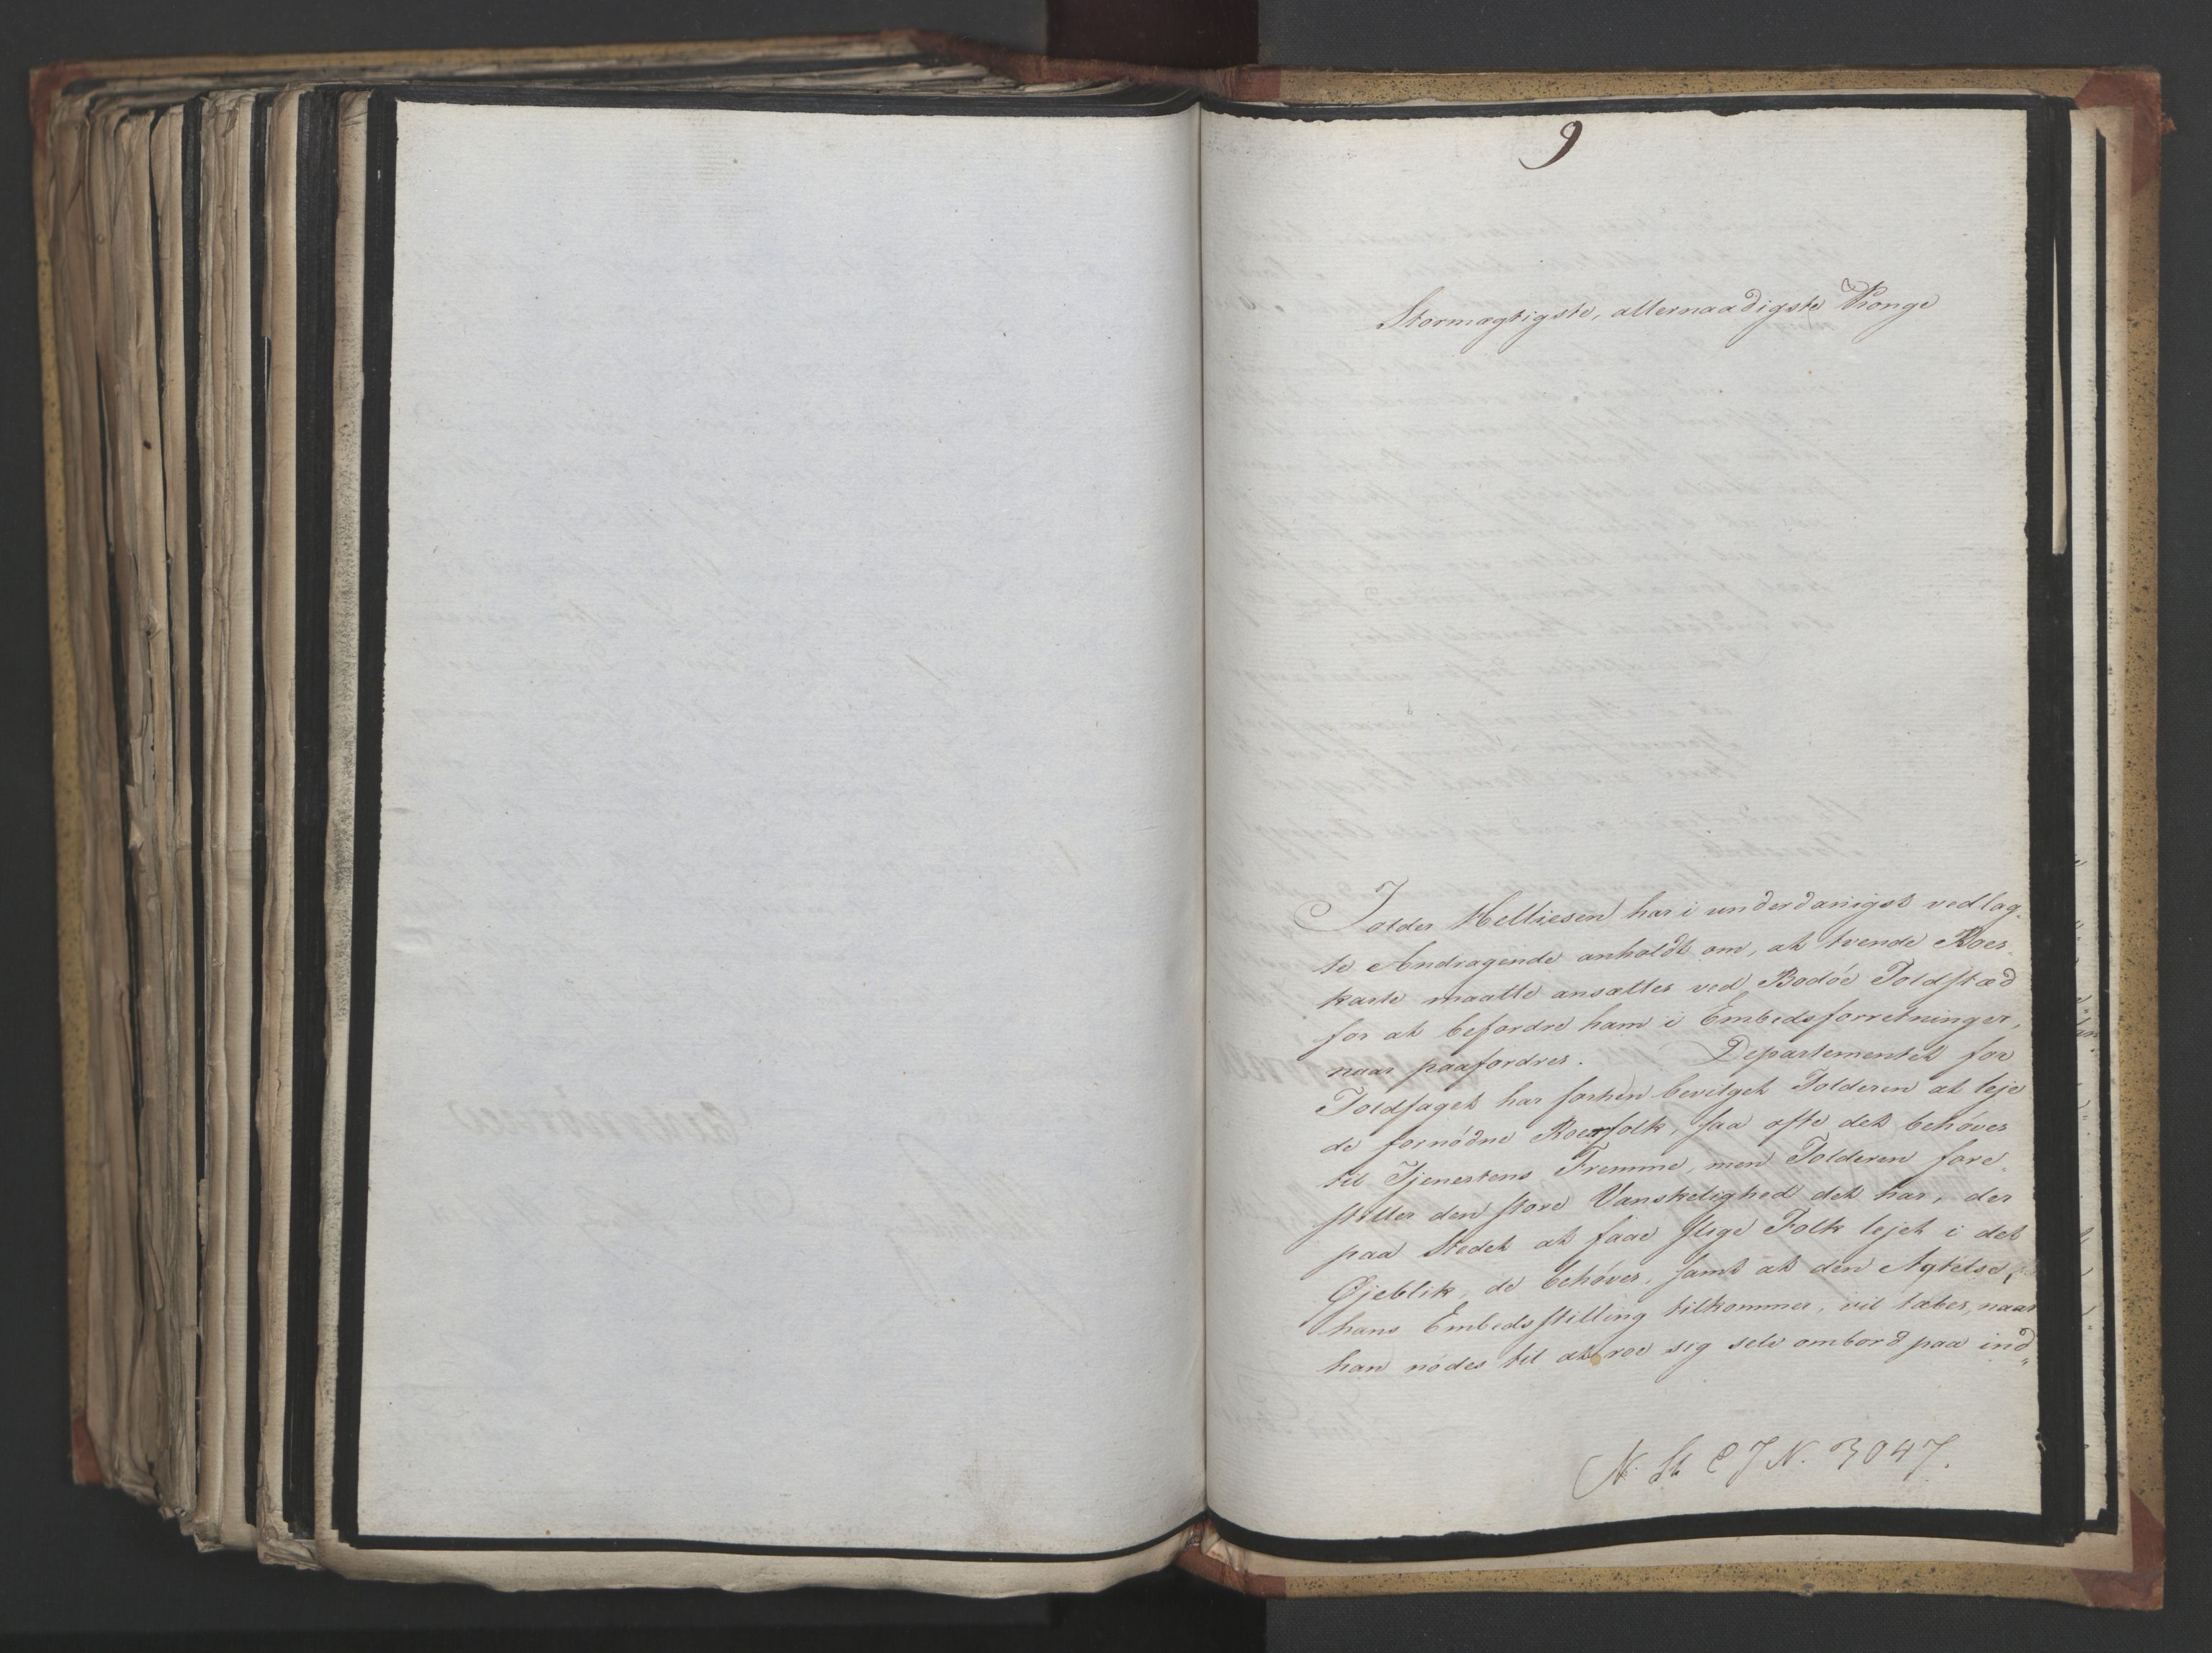 9
Stormægtigste, allernaadigste Konge
Tolder Helliesen har i underdanigst vedlag-
te Andragende anholdt om, at tvende Roes-
karle maatte ansættes ved Bodöe Toldstæd
for at befordre ham i Embedsforretninger,
naar paafordres. Departementet for
Toldfaget har forhen bevilget Tolderen at leje
de fornødne Roerfolk, saa ofte det behøves
til Tjenestens Fremme, men Tolderen fore-
stiller den store Vanskelighed det har, der
paa Stedet at faae slige Folk lejet i det
Øjeblik, de behøves, samt at den Agtelse,
hans Embedsstilling tilkommer, vil tabes, naar
han nødes til at roe sig selv ombord paa ind-
N. St C J N. 3047.